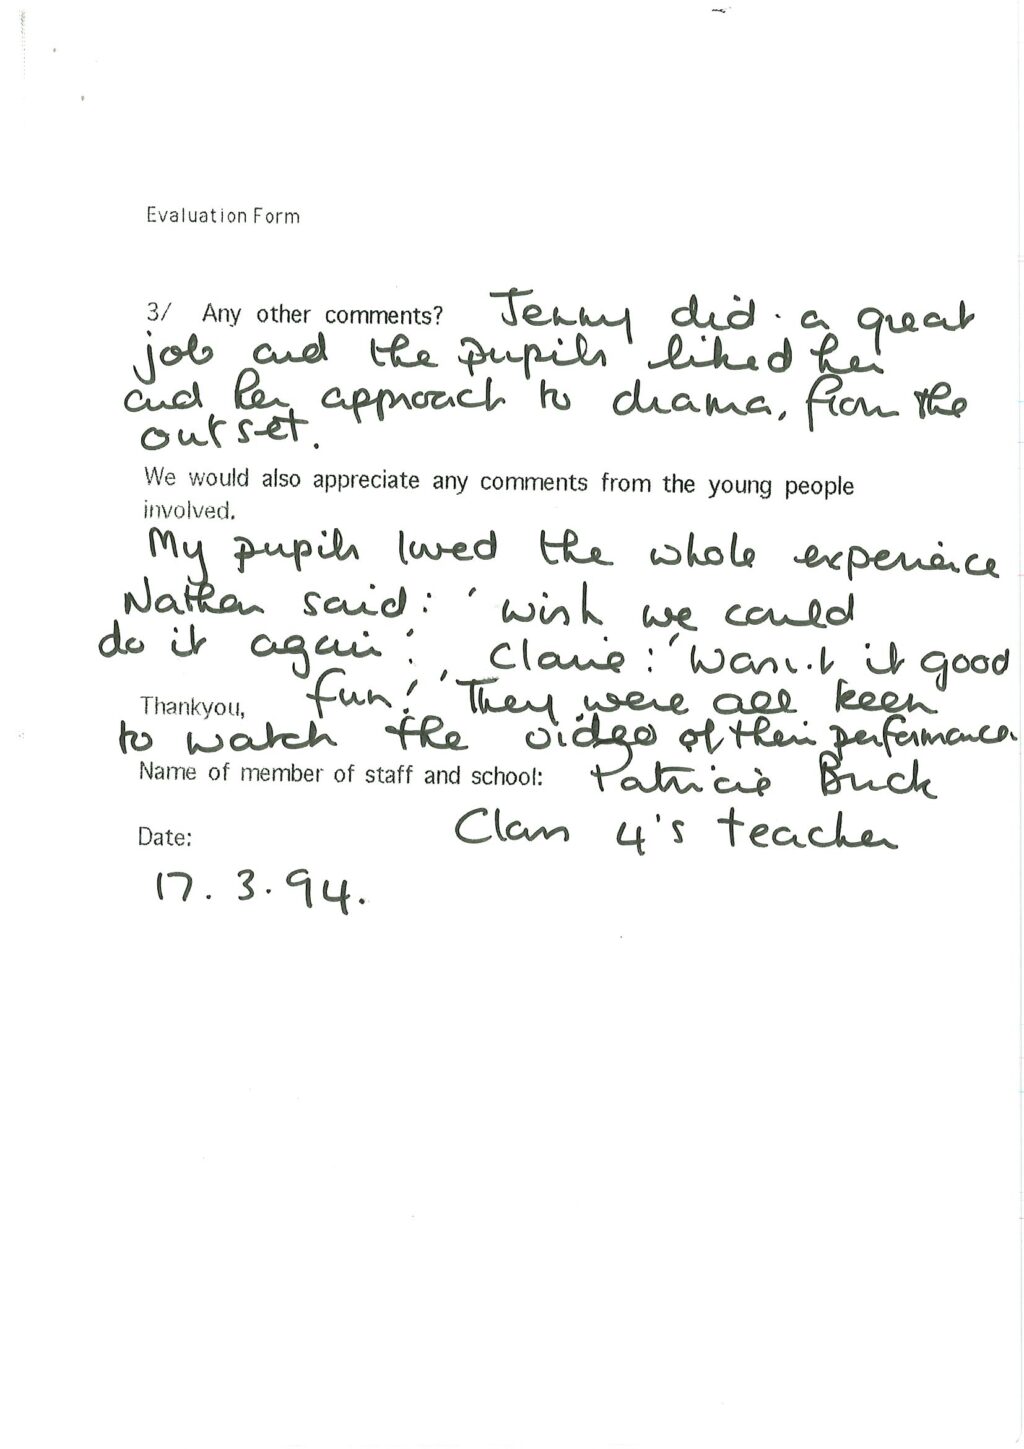 Evaluation Form
3/ Any other comments? Jenny did a great
job and the pupils liked her
and her approach to drama, from the
outset.
We would also appreciate any comments from the young people
involved.
My pupils loved the whole experience
Nathan said: 'Wish we could
do it again'. Claire: 'Wasn't it good
fun!' They were all keen
Thankyou,
to watch the video of their performance.
Name of member of staff and school: Patricia Buck
Class 4's teacher
Date:
17.3.94.